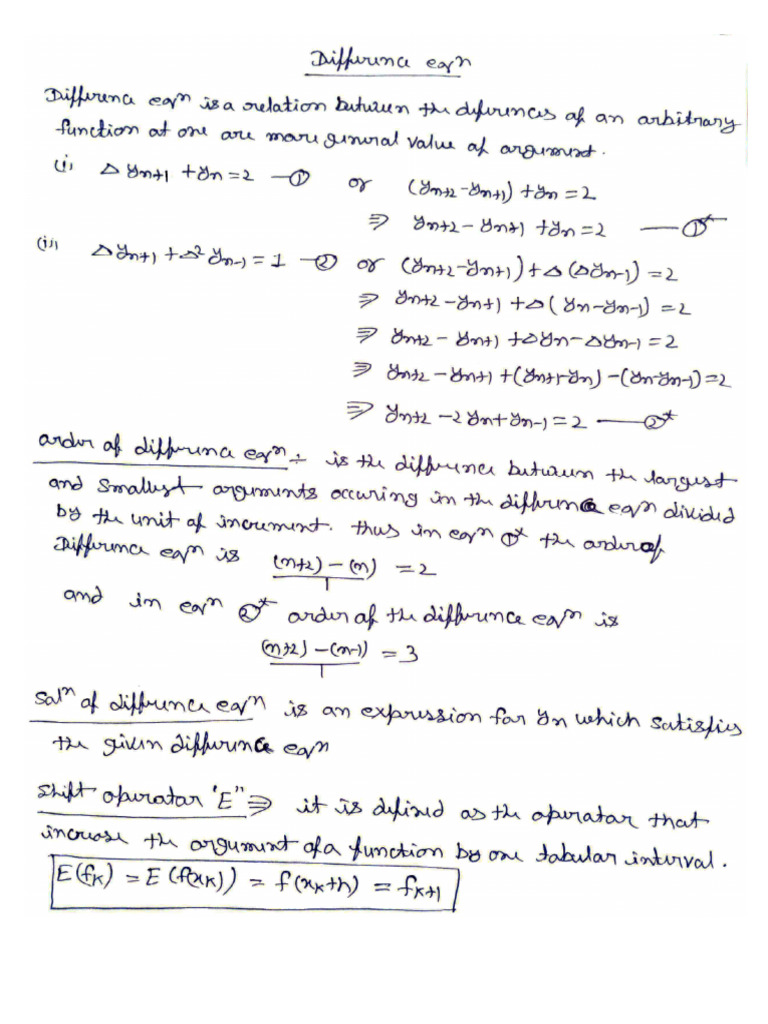 Difference eqⁿ
Difference eqⁿ is a relation between the diferences of an arbitrary
function at one are more general value of argument.
(i) Δyn+1 + yn = 2 — ① or (yn+2 - yn+1) + yn = 2
⇒ yn+2 - yn+1 + yn = 2 — ①*
(ii) Δyn+1 + Δ² yn-1 = 1 — ② or (yn+2 - yn+1) + Δ(Δyn-1) = 2
⇒ yn+2 - yn+1 + Δ(yn - yn-1) = 2
⇒ yn+2 - yn+1 + Δyn - Δyn-1 = 2
⇒ yn+2 - yn+1 + (yn+1 - yn) - (yn - yn-1) = 2
⇒ yn+2 - 2yn + yn-1 = 2 — ②*
order of difference eqⁿ ÷ is the difference between the largest
and smallest arguments occuring in the difference eqⁿ divided
by the unit of increment. thus in eqⁿ ①* the order of
Difference eqⁿ is (n+2) - (n) = 2
1
and in eqⁿ ②* order of the difference eqⁿ is
(n+2) - (n-1) = 3
1
Solⁿ of diffrence eqⁿ is an expression for yn which satisfies
the given difference eqⁿ
Shift operator 'E" ⇒ it is defined as the operator that
increase the argument of a function by one tabular interval.
E(fK) = E(f(xK)) = f(xK+h) = fK+1